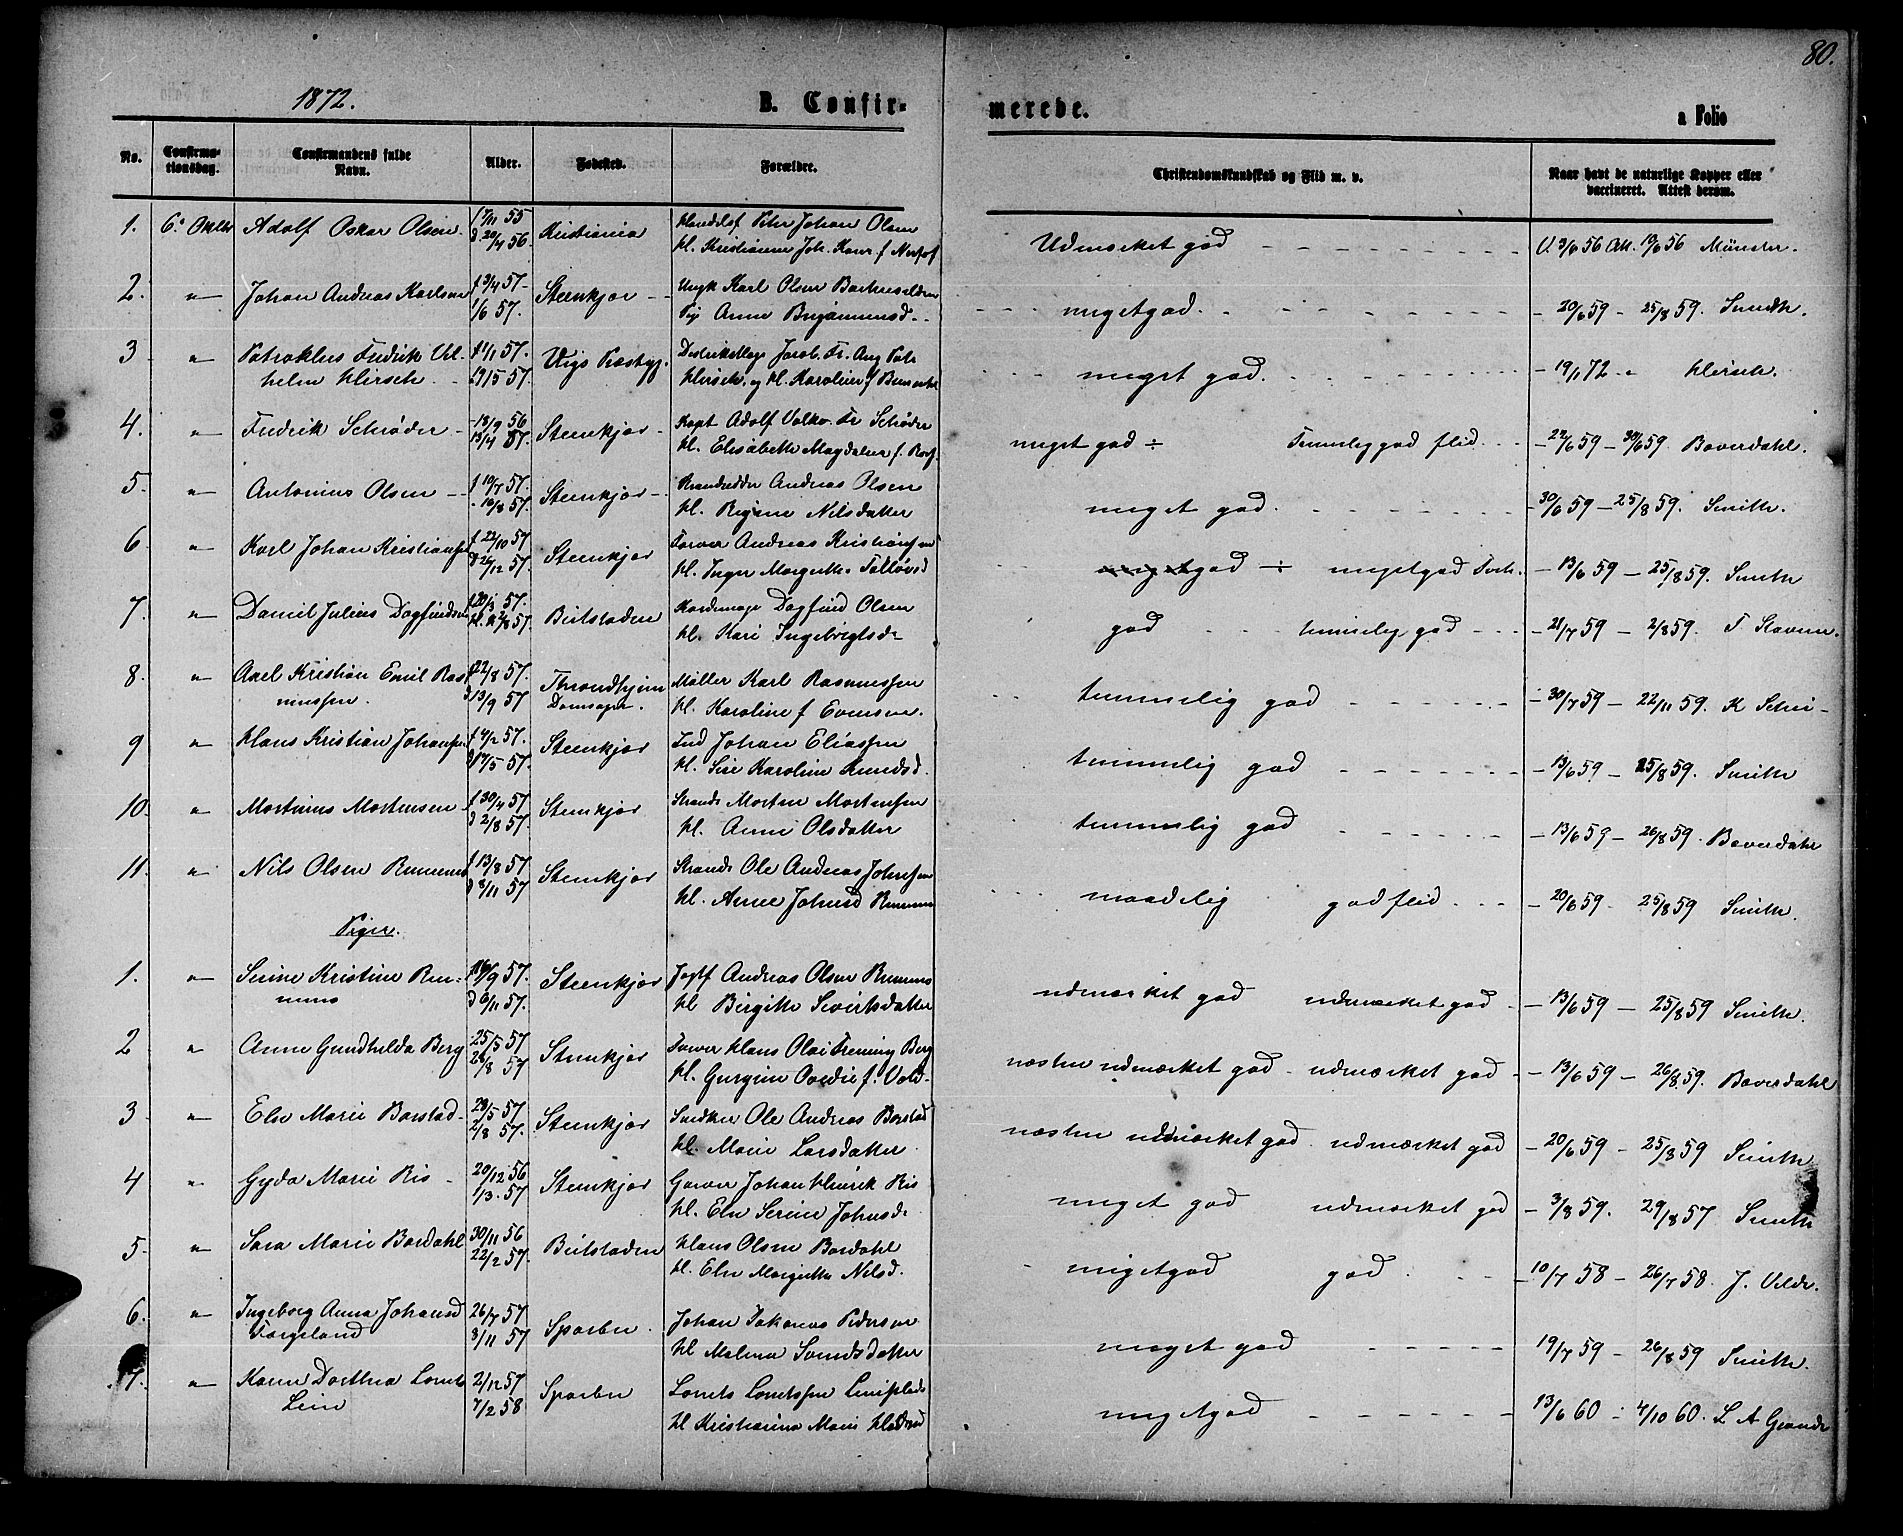 80.
1872.
B. Confir- merede.
a Folio
No. Confirmationsdag. Confirmandens fulde Navn. Alder. Fødested. Forældre. Christendomskundskab og Flid m. v. Naar havt de naturlige Kopper eller vaccineret. Attest derom.
1. 6. Oktbr Adolf Oskar Olsen f 7/11 55 Kristiania Peter Johan Olsen
d 20/4 56. hl. Kristianne Joh. Udmærket god - - - V. 3/6 56 Att. 19/6 56 Münster.
2. " Johan Andreas Karlsen f 3/4 57 Steenkjær Ungk Karl Olsen
1/6 57. Pig Anne Benjaminsd. meget god. - 20/6 59 - 25/8 59. Smith.
3 " Patroklus Fredrik Vil- f 1/1 57. Vigs Præstegj. Distriktslæge Jacob Fr. Aug
helm Hirsch. 19/5 57. Hirsch og hl. Karoline f meget god. - 19/1 72 - Hirsch.
4. " Fredrik Schrøder 18/9 56 Steenkjær Kapt Adolf Volkv. Fr Schrøder
13/4 57. hl. Elisabeth Magdalene f. meget god ÷ Temmelig god flid - 22/6 59 - 30/6 59. Baverdahl.
5. " Antonius Olsen f 10/7 57. Steenkjær Strandsidder Andreas Olsen
16/8 57. hl. Regine Nilsdatter meget god. - 30/6 59 - 25/8 59. Smith.
6. " Karl Johan Kristiansen f 22/10 57 Steenkjær Farver Andreas Kristiansen
d 26/12 57. hl. Inger Margrethe meget god ÷ meget god - 13/6 59 - 25/8 59. Smith
7. " Daniel Julius Dagfindsen f 20/3 57. Beitstaden Dagfind Olsen
2/8 57. hl. Kari Ingebrigtsd. god temmelig god - 21/7 59 - 2/8 59.
8. " Axel Kristian Emil Ras- f 22/8 57. Throndhjem Møller Karl Rasmussen
mussen. d 13/9 57 Domsogn. hl. Karoline f Evensen. temmelig god - 30/7 59 - 22/11 59.
9 " Hans Kristian Johansen f 4/2 57. Steenkjær Ind Johan Eliassen
d 17/5 57. hl. Sire Karoline temmelig god - 13/6 59 - 25/8 59. Smith
10. " Martinus Mortensen f 30/4 57 Steenkjær Strands Morten Mortensen
d 2/8 57. hl. Anne Olsdatter temmelig god - 13/6 59 - 26/8 59. Baverdahl
11. " Nils Olsen Remmen f 13/8 57 Steenkjær Strands Ole Andreas Johnsen
d 8/11 57 hl. Anne Johnsd Remmen maadelig god flid - 20/6 59 - 25/8 59 Smith.
Piger.
1. " Serine Kristine Rem- 16/9 57. Steenkjær Andreas Olsen Remmens
mens d 6/11 57. hl Birgitte Sivertsdatter udmærket god udmærket god - 13/6 59 - 25/8 59 Smith.
2 " Anne Gundhilda Berg 25/5 57 Steenkjær Farver Hans Olai Berg
21/8 59 hl. Gurgine f. Vold næsten udmærket god - udmærket god - 13/6 59 - 26/8 59. Baverdahl
3 " Elen Marie Barstad 23/5 57 Steenkjær Snedker Ole Andreas Barstad
2/8 57. hl. Marie Larsdatter næsten udmærket god. udmærket god - 20/6 59 - 25/8 59 Smith
4 " Gyda Marie Ris 20/12 56 Steenkjær Garver Johan Hinrik Ris
1/3 57 hl. Elen Serine Johnsd. meget god udmærket god - 3/8 59. 29/8 57 Smith
5. " Sara Marie Bardahl 30/11 56 Beitstaden Hans Olsen Bardahl
22/2 57. hl. Elen Margrethe Nilsd. meget god god. - 10/7 58 - 26/7 58. J. Velde.
6. " Ingeborg Anna Johansd 26/7 57 Sparbu Johan Zakarias Pedersen
3/11 57 hl Malena Svendsdatter meget god 19/7 59 - 26/8 59 Smith.
7. " Karen Dorthea Lorents 2/12 57 Sparbu Lorents Lorentssen
Lein 7/2 58 hl Kristianna Marie meget god 13/6 60 - 4/10 60. L A Grande